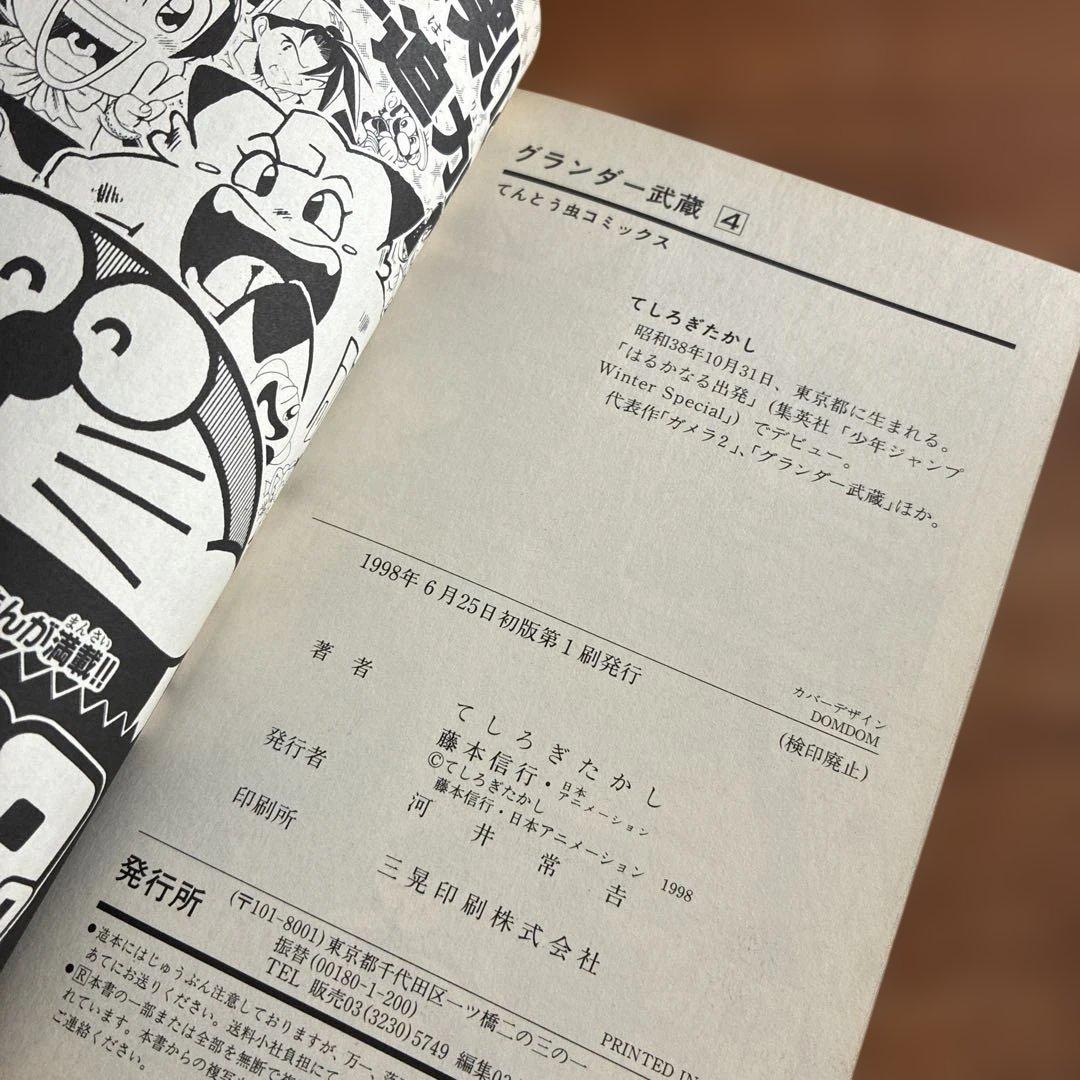 まんさい
んが満載!!
グランダー武蔵 4
てんとう虫コミックス
てしろぎたかし
昭和38年10月31日、東京都に生まれる。
「はるかなる出発」(集英社「少年ジャンプ
Winter Special」)でデビュー。
代表作「ガメラ2」、「グランダー武蔵」ほか。
1998年6月25日初版第1刷発行
カバーデザイン
DOMDOM
(検印廃止)
著者 てしろぎたかし
藤本信行・日本アニメーション
©てしろぎたかし
藤本信行・日本アニメーション 1998
発行者 河井常吉
印刷所 三晃印刷株式会社
PRINTED IN
発行所
(〒101-8001)東京都千代田区一ツ橋二の三の一
振替(00180-1-200)
TEL 販売03(3230)5749 編集03
●造本にはじゅうぶん注意しておりますが、万一、落
あてにお送りください。送料小社負担にて
●Ⓡ本書の一部または全部を無断で複
れています。本書からの複写
ご連絡ください。